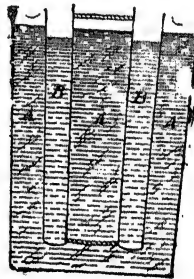 A B A B A